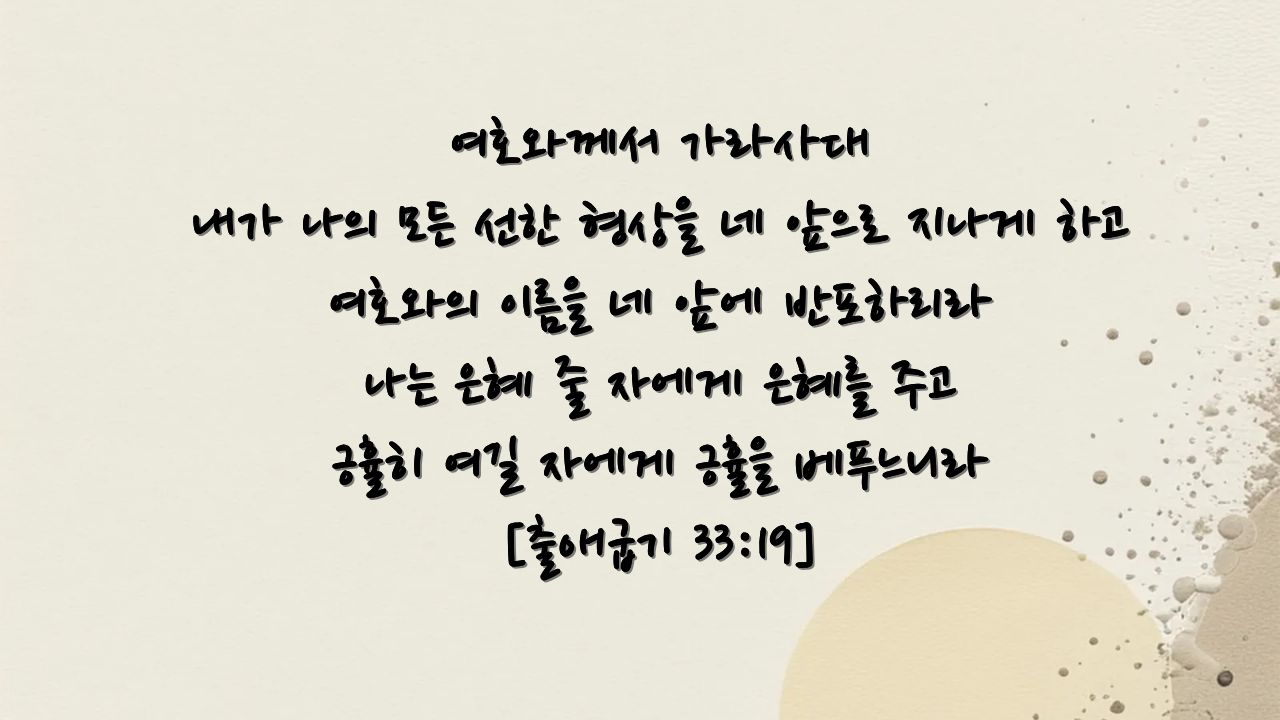 여호와께서 가라사대
내가 나의 모든 선한 형상을 네 앞으로 지나게 하고
여호와의 이름을 네 앞에 반포하리라
나는 은혜 줄 자에게 은혜를 주고
긍휼히 여길 자에게 긍휼을 베푸느니라
[출애굽기 33:19]